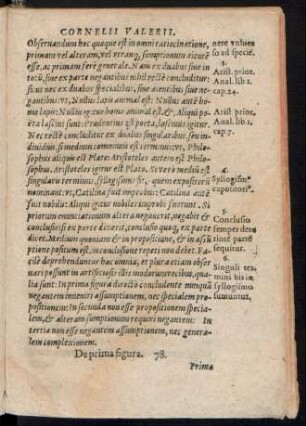 CORNELII VALERII.
Observandum hoc quoque est in omni ratiocinatione,
primam vel alteram, vel utranq; sumptionum
esse, ac primam ferè generale. Nam ex duabus sive in
totũ, sive ex parte negantibus nihil rectè concluditur:
sicut nec ex duabus specialibus, sive aientibus sive ne-
gantibus: ut, Nullus lapis animal est: Nullus autẽ ho-
mo lapis: Nullus igitur homo animal est, &, Aliqui po-
ëta lascivi sunt: Prudentius est poëta, lascivus igitur.
Nec rectè concluditur ex duabus singularibus, seu in-
dividuis, si medium communis sit terminus: ut, Philo-
sophus aliquis est Plato: Aristoteles autem est Philo-
sophus. Aristoteles igitur est Plato. Si verò mediũ est
singularis terminus, syllogismus fit, quem expositorium
nominant: ut, Catilina fuit improbus: Catilina autẽ
fuit nobilis: Aliquis igitur nobiles improbi fuerunt. Si
priorum enunciationum altera negaverit, negabit &
conclusio: si ex parte dixerit, conclusio quoq, ex parte
dicet. Medium quoniam & in propositione, & in assũ-
ptione positum est, in conclusione repeti non debet. Fa-
cilè deprehenduntur hæc omnia, et plura etiam obser-
vari possunt in artificiosis istis modorum vocibus, qua-
lia sunt: In prima figura directò concludente nunquã
negantem inveniri assumptionem, nec specialem pro-
positionem: In secunda non esse propositionem specia-
lem, & alteram sumptionum requiri negantem: In
tertia non esse negantem assumptionem, nec genera-
lem complexionem.
De prima figura. 78.
Prima
nere value
so ad specië.
3.
Arist. prior.
Anal. lib. 1.
cap. 24.
Arist. prior.
Anal. lib. 1.
cap. 7.
4.
Syllogismꝰ
5.
Conclusio
semper dete
riorẽ partẽ
sequitur.
6.
Singuli ter
mini bis in
syllogismo
sumuntur.